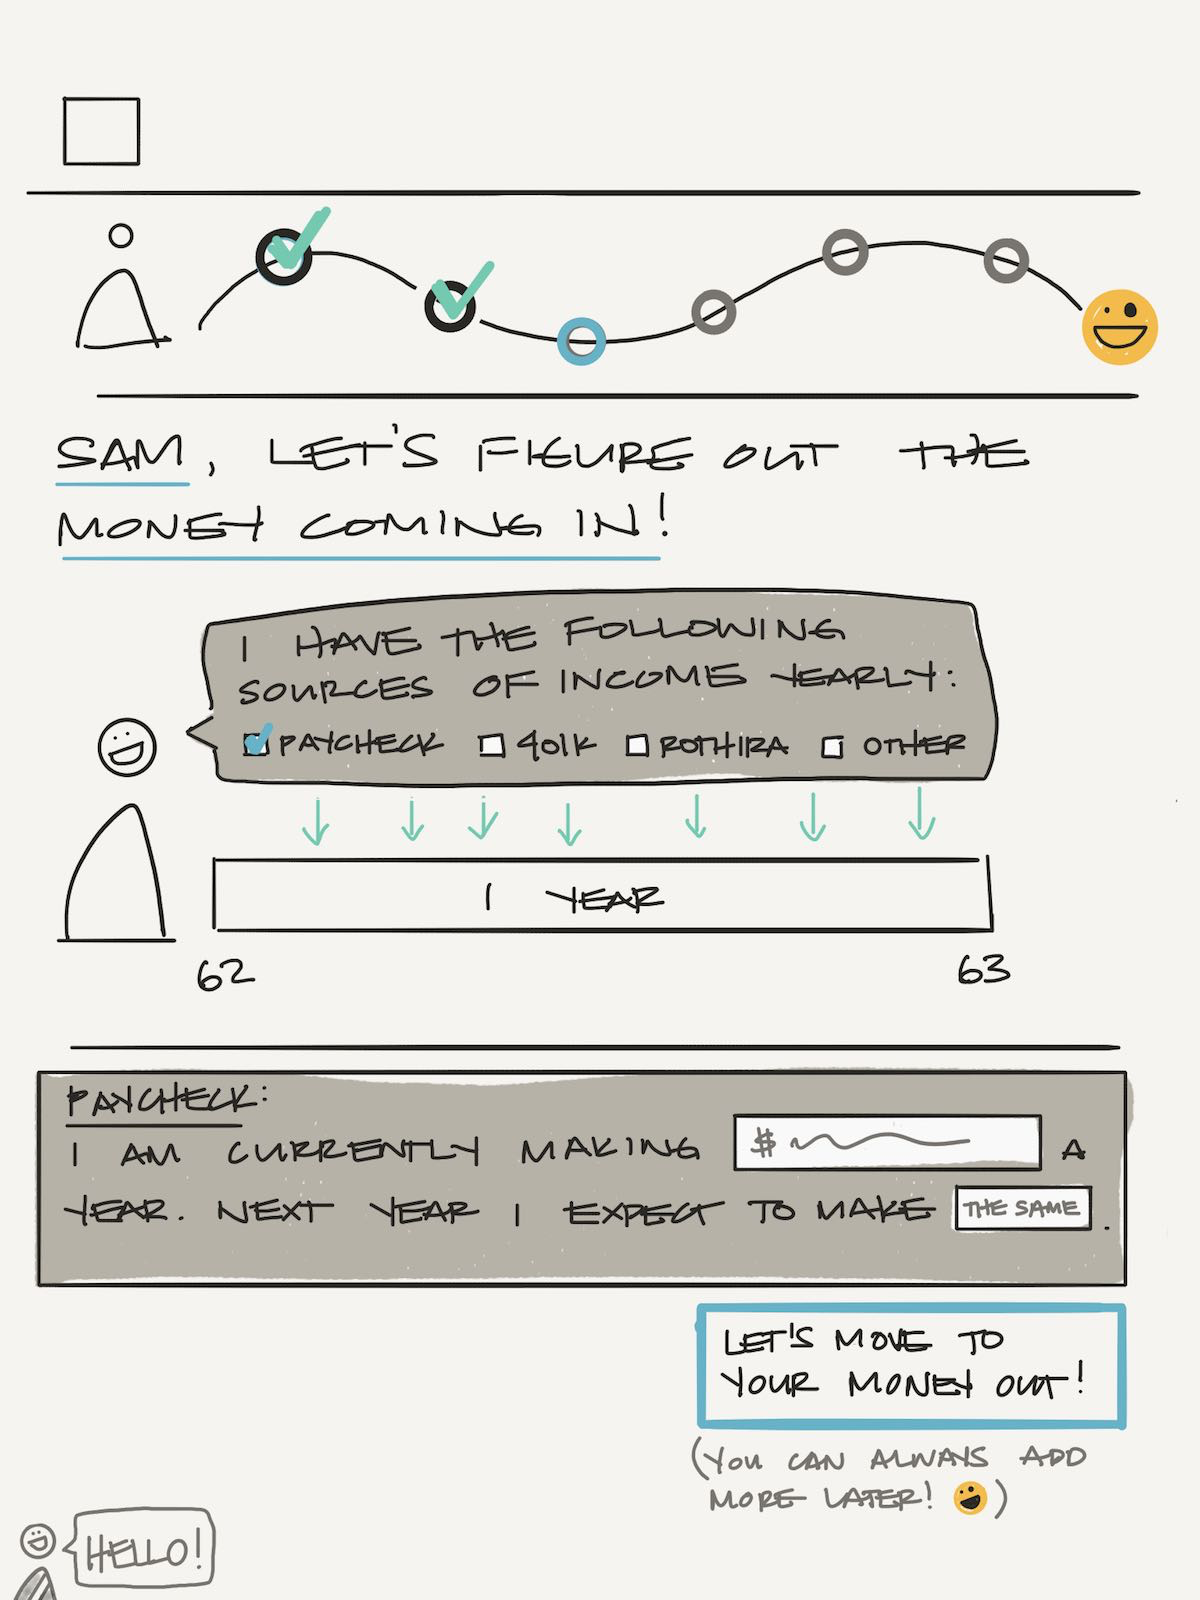 SAM, LET'S FIGURE OUT THE
MONEY COMING IN!
I HAVE THE FOLLOWING
SOURCES OF INCOME YEARLY:
PAYCHECK 401K ROTHIRA OTHER
1 YEAR
62 63
PAYCHECK:
I AM CURRENTLY MAKING $ A
YEAR. NEXT YEAR I EXPECT TO MAKE THE SAME.
LET'S MOVE TO
YOUR MONEY OUT!
(YOU CAN ALWAYS ADD
MORE LATER! )
HELLO!